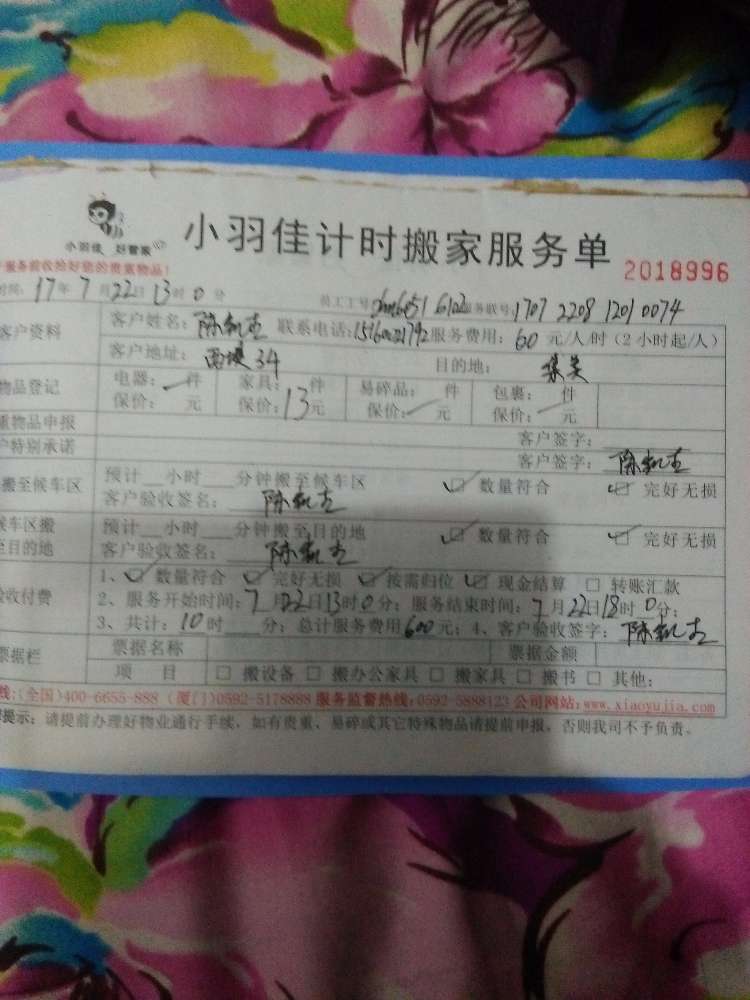 小羽佳 好管家
小羽佳计时搬家服务单
2018996
服务前收拾好您的贵重物品！
17年7月22日13时0分 员工工号 务联号：1707 2208 1201 0074
客户资料 客户姓名： 联系电话： 服务费用：60元/人/时（2小时起/人）
客户地址： 34 目的地：集美
物品登记 电器： 件 家具： 件 易碎品： 件 包裹： 件
保价： 元 保价：13元 保价： 元 保价： 元
重物品申报 客户签字：
户特别承诺 客户签字：
搬至候车区 预计 小时 分钟搬至候车区 数量符合 完好无损
客户验收签名：
候车区搬 预计 小时 分钟搬至目的地 数量符合 完好无损
至目的地 客户验收签名：
验收付费 1、 数量符合 完好无损 按需归位 现金结算 转账汇款
2、服务开始时间：7月22日13时0分；服务结束时间：7月22日18时0分；
3、共计：10时 分；总计服务费用600元；4、客户验收签字：
票据栏 票据名称 票据金额
项 目 搬设备 搬办公家具 搬家具 搬书 其他：
线：(全国)400-6655-888 (厦门)0592-5178888 服务监督热线：0592-5888123 公司网站：www.xiaoyujia.com
提示：请提前办理好物业通行手续，如有贵重、易碎或其它特殊物品请提前申报，否则我司不予负责。